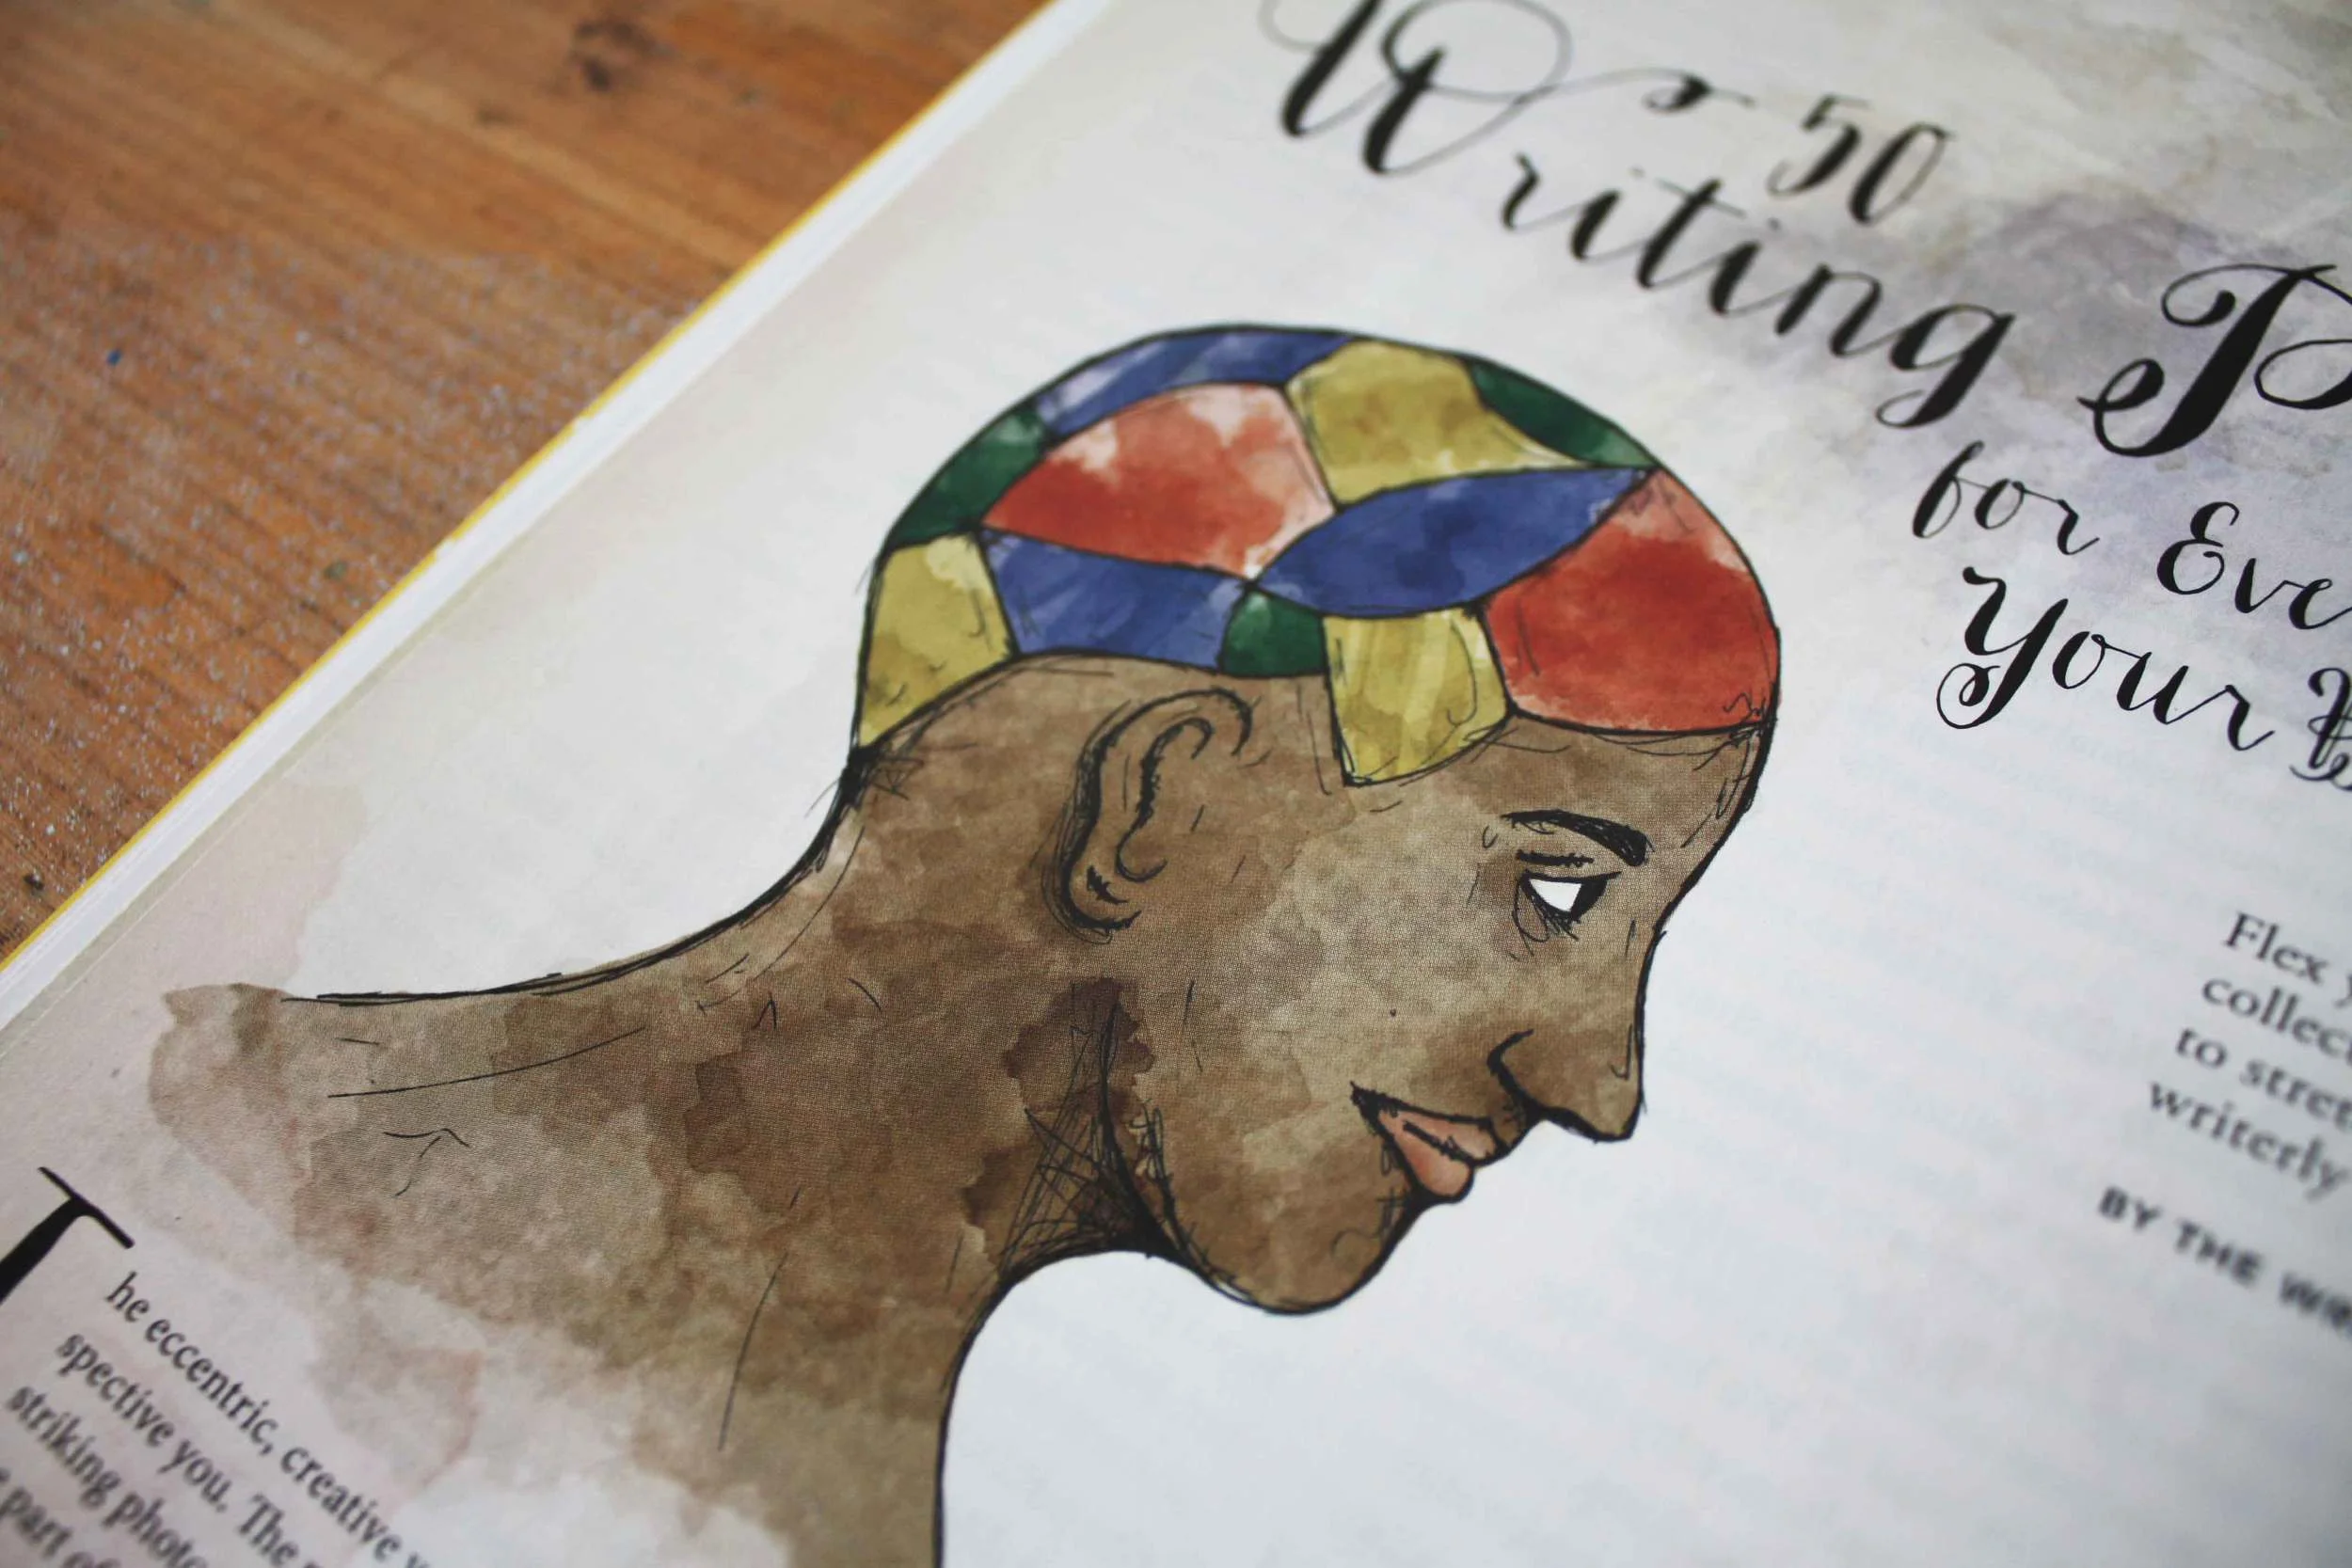 50
Writing P
for Eve
Your
Flex
collec
to stret
writerly
BY THE WRI
The eccentric, creative
spective you. The
striking photo
part of